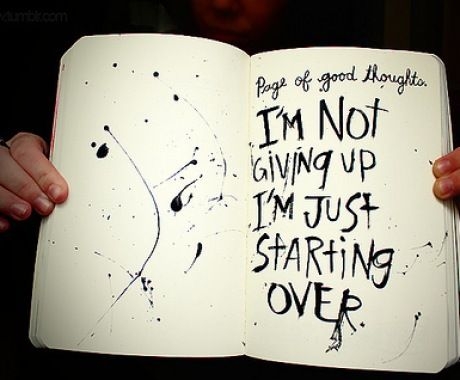 tumblr.com
Page of good thoughts.
I'M NOT
GIVING UP
I'M JUST
STARTING
OVER.